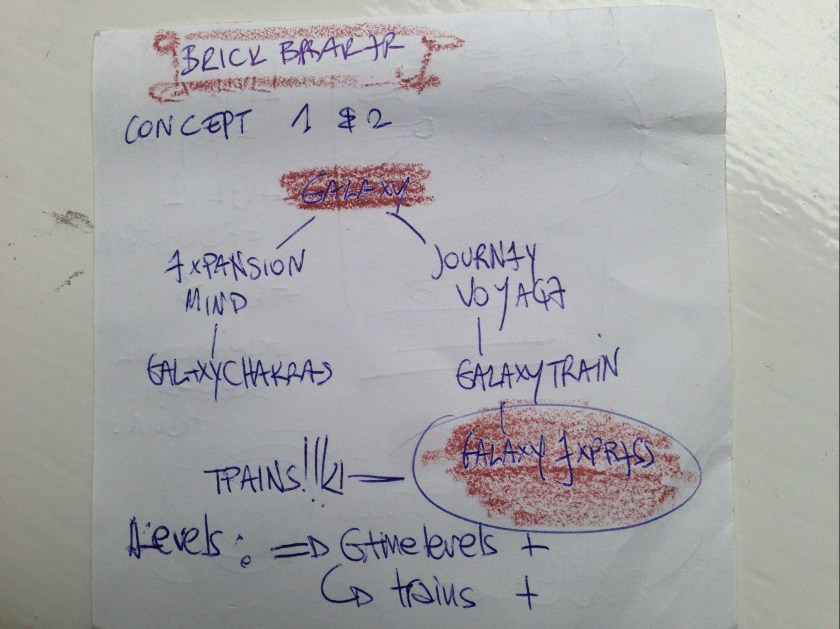 BRICK BREAKER
CONCEPT 1 & 2
GALAXY
EXPANSION
MIND
JOURNEY
VOYAGE
GALAXYCHAKRAS
GALAXYTRAIN
GALAXY EXPRESS
TRAINS!!!
Levels: => Gamelevels +
trains +